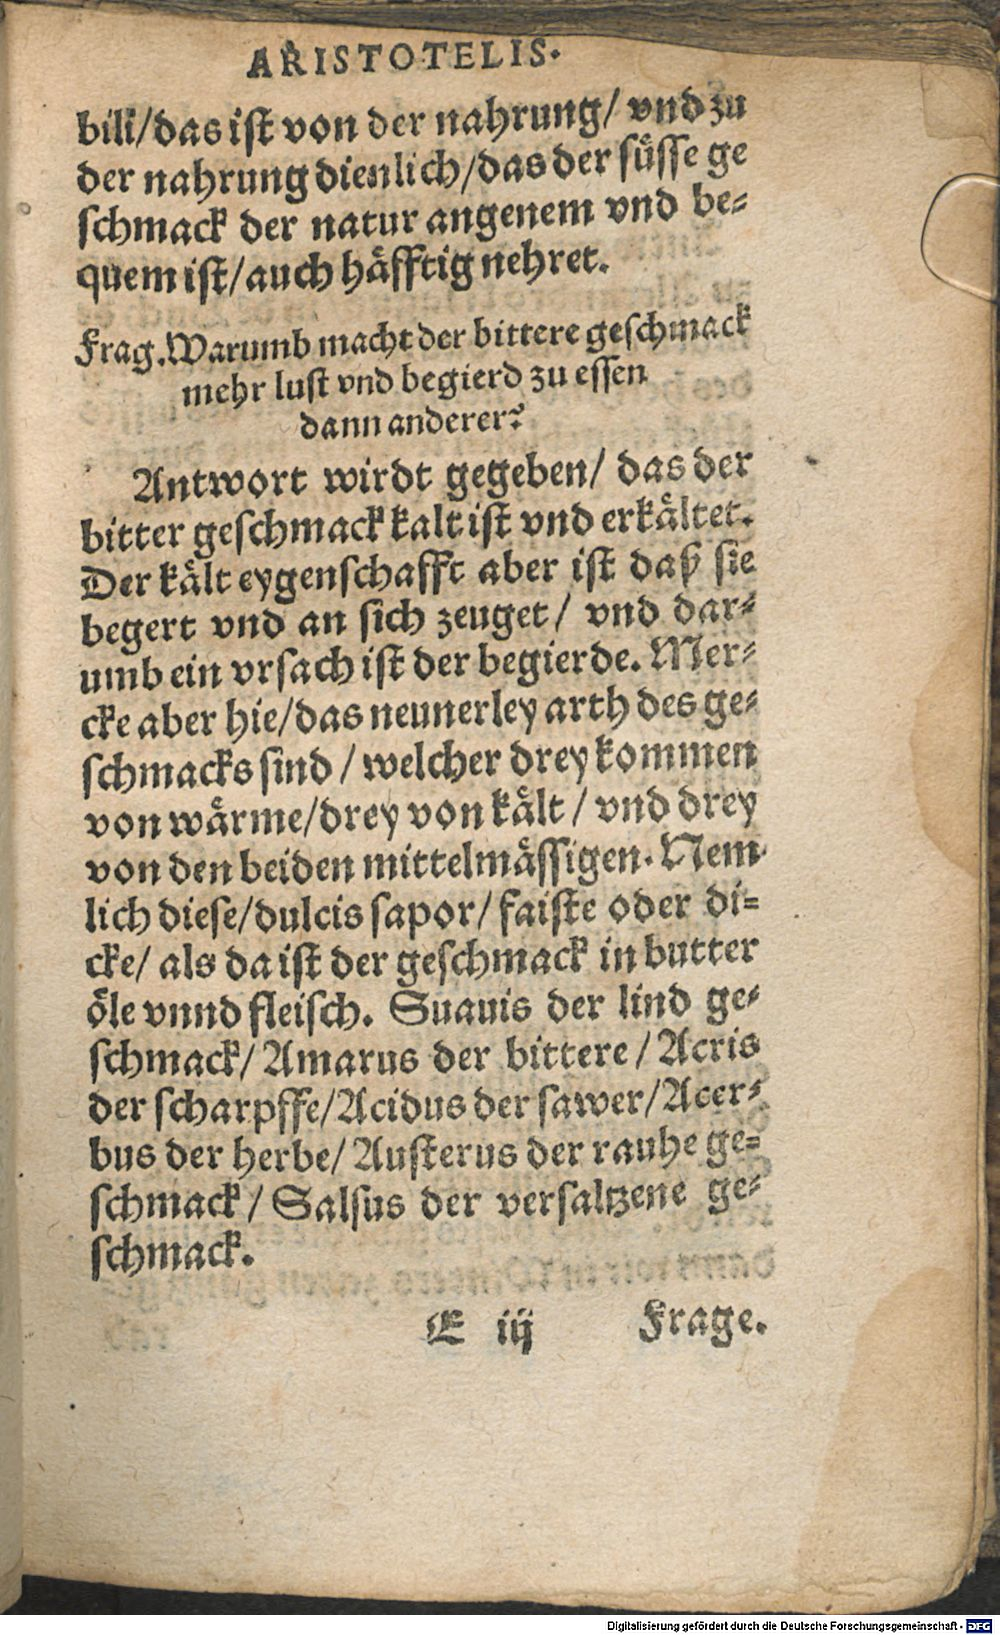 ARISTOTELIS.
bili/das ist von der nahrung/ vnd zu
der nahrung dienlich/das der süsse ge
schmack der natur angenem vnd be-
quem ist/auch häfftig nehret.
Frag. Warumb macht der bittere geschmack
mehr lust vnd begierd zu essen
dann anderer?
Antwort wirdt gegeben/ das der
bitter geschmack kalt ist vnd erkältet.
Der kält eygenschafft aber ist daß sie
begert vnd an sich zeuget/ vnd dar-
umb ein vrsach ist der begierde. Mer-
cke aber hie/das neunerley arth des ge-
schmacks sind/ welcher drey kommen
von wärme/drey von kält/ vnd drey
von den beiden mittelmässigen. Nem
lich diese/dulcis sapor/ faiste oder di-
cke/ als da ist der geschmack in butter
öle vnnd fleisch. Suauis der lind ge-
schmack/ Amarus der bittere/ Acris
der scharpffe/Acidus der sawer/Acer-
bus der herbe/ Austerus der rauhe ge-
schmack/ Salsus der versaltzene ge-
schmack.
E iij Frage.
Digitalisierung gefördert durch die Deutsche Forschungsgemeinschaft - DFG